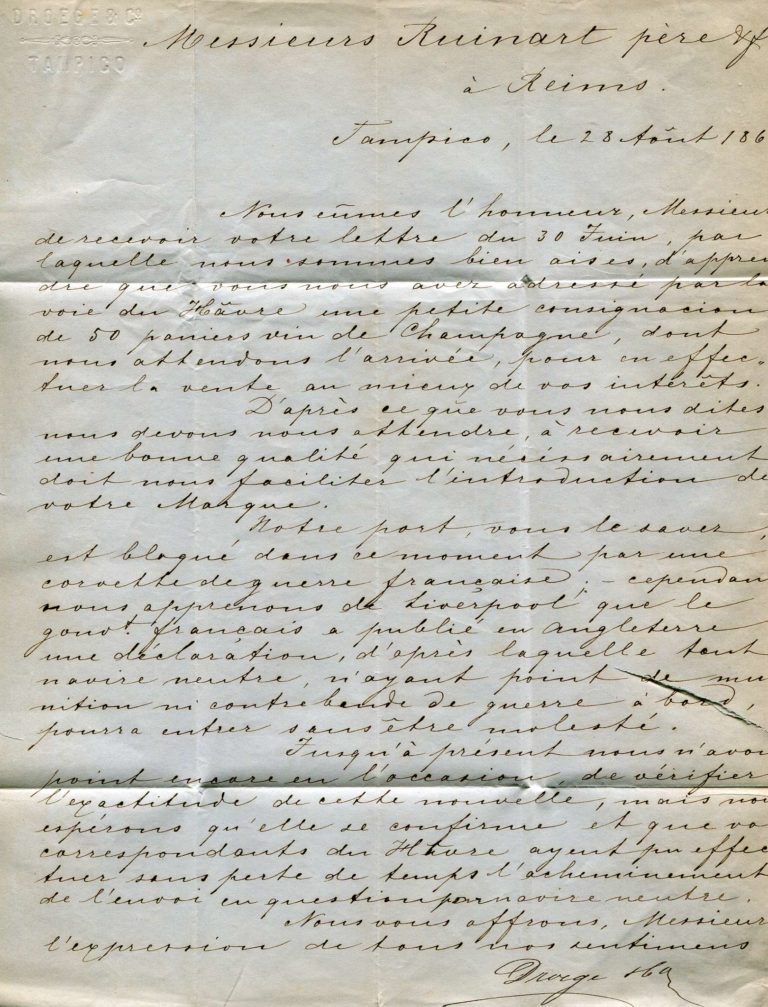 DROEGE & Co.
TAMPICO
Messieurs Ruinart père & f
à Reims.
Tampico, le 28 Août 186
Nous eûmes l'honneur, Messieur
de recevoir votre lettre du 30 Juin, par
laquelle nous sommes bien aises, d'appren
dre que vous nous avez adressé par la
voie du Hâvre une petite consignacion
de 50 paniers vin de Champagne, dont
nous attendons l'arrivée, pour en effec-
tuer la vente au mieux de vos intérêts.
D'après ce que vous nous dites
nous devons nous attendre, à recevoir
une bonne qualité qui nécéssairement
doit nous faciliter l'introduction de
votre Marque.
Notre port, vous le savez,
est bloqué dans ce moment par une
corvette de guerre française; - cependan
nous apprenons de Liverpool que le
gouvt. français a publié en Angleterre
une déclaration, d'après laquelle tout
navire neutre, n'ayant point de mu
nition ni contrebende de guerre à bord,
pourra entrer sans être molesté.
Jusqu'à présent nous n'avon
point encore eu l'occasion, de vérifier
l'exactitude de cette nouvelle, mais nou
espérons qu'elle se confirme et que vo
correspondants du Hâvre ayent pu effec
tuer sans perte de temps l'acheminement
de l'envoi en question par navire neutre.
Nous vous offrons, Messieur
l'expression de tous nos sentimens
Droege & Co